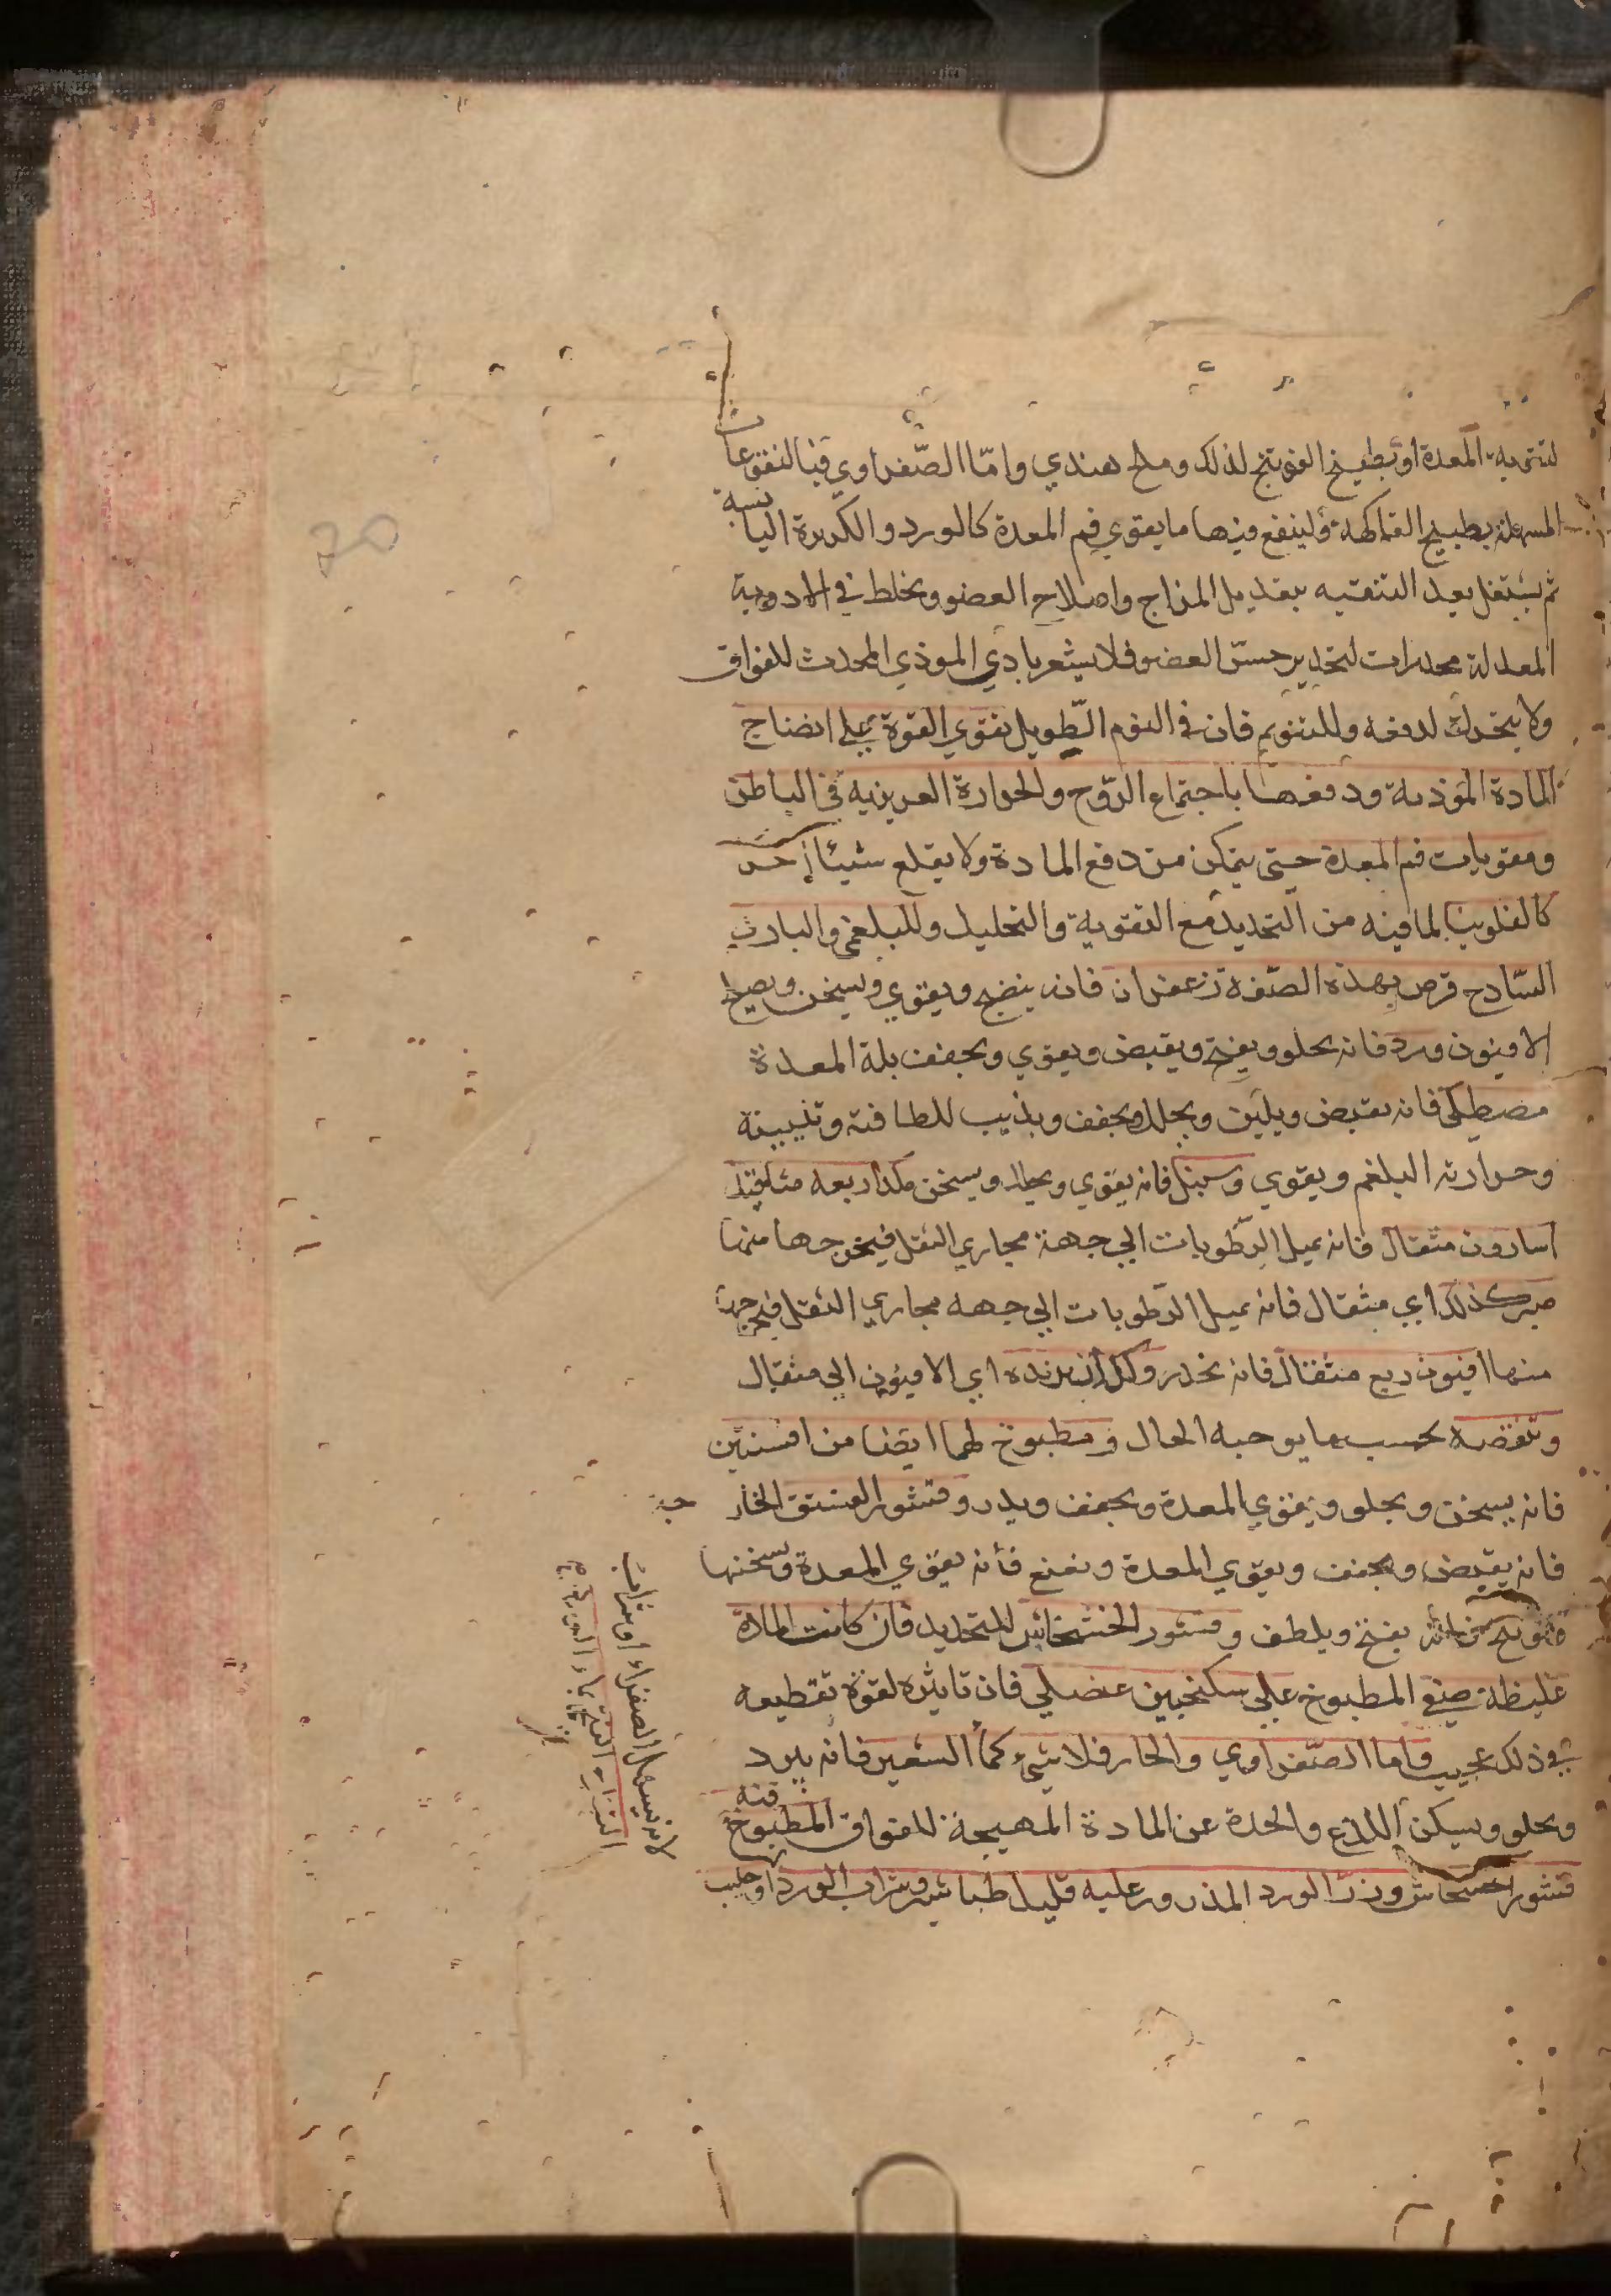 لتقويه المعدة او بطبيخ الفوتنج لذلك وملح هندي وامّا الصّفراوي فبالنقوعات
المسهلة بطبيخ الفاكهة ولينفع فيها ما يقوي فم المعدة كالورد والكزبرة اليابسة
ثم يشتغل بعد التنقيه بتعديل المزاج واصلاح العضو ويخلط في الادوية
المعدلة مخدرات لتخدير حسّ العضو فلا يشعر باذي الموذي المحدث للفواق
ولا يتحرك لدفعه وللتنويم فان في النوم الطّويل تقوي القوة علي انضاج
المادة الموذية ودفعها باجتماع الرّوح والحرارة الغريزيه في الباطن
ومقويات فم المعدة حتى يتمكن من دفع المادة ولا يقلع شيئا اخر
كالفلونيا لما فيه من التخدير مع التقوية والتحليل وللبلغمي والبارد
السّادج قرص بهذه الصّفة زعفران فانه ينضج ويقوي ويسخن ويصلح
الافيون ورد فانه يجلو ويفتح ويقبض ويقوي ويجفف بلة المعدة
مصطكي فانه يقبض ويلين ويحلل ويجفف ويذيب للطافته وتليينه
وحرارته البلغم ويقوي وسنبل فانه يقوي ويحلل ويسخن مكد اربعه مثاقيل
اسارون مثقال فانه يميل الرّطوبات الي جهة مجاري الثفل فيخرجها منها
صبر كذلك اي مثقال فانه يميل الرّطوبات الي جهه مجاري الثفل فيخرجها
منها افيون ربع مثقال فانه يخدر ولك ان تزيده اي الافيون الي مثقال
وتنقصه بحسب ما يوجبه الحال ومطبوخ لهما ايضا من افسنتين
فانه يسخن ويجلو ويقوي المعدة ويجفف ويدر وقشور الفستق الخارجيه
فانه يقبض ويجفف ويقوي المعدة ونعنع فأنه يقوي المعدة ويسخنها
فوتنج فانه يفتح ويلطف وقشور الخشخاش للتخدير فان كانت المادة
غليظة صنع المطبوخ علي سكنجبين عنصلي فان تاثيره لقوة تقطيعه
في ذلك عجيب واما الصّفراوي والحار فلا شيء كماء الشعير فانه يبرد
ويجلو ويسكن اللذع والحدة عن المادة المهيجة للفواق المطبوخ فيه
قشور الخشخاش وزر الورد المذرور عليه قليل طباشير وشراب الورد او حليب
لانه يسهل الصفراء او شراب